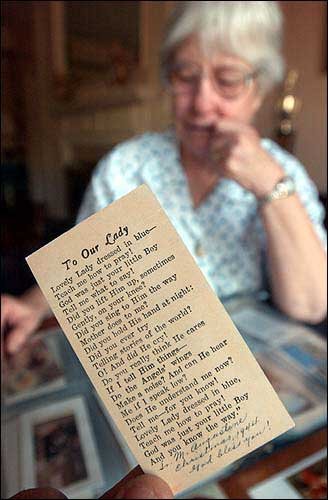 To Our Lady
Lovely Lady dressed in blue—
Teach me how to pray!
God was just your little Boy
Tell me what to say!
Did you lift Him up, sometimes
Gently, on your knee?
Did you sing to Him the way
Mother does to me?
Did you hold His hand at night?
Did you ever try
Telling stories of the world?
O! And did He cry?
Do you really think He cares
If I tell Him things—
Do the Angels' wings
Make a noise? And can He hear
Me if I speak low?
Does He understand me now?
Tell me—for you know!
Lovely Lady dressed in blue,
Teach me how to pray!
God was just your little Boy
And you know the way."
Christmas,
God bless you!